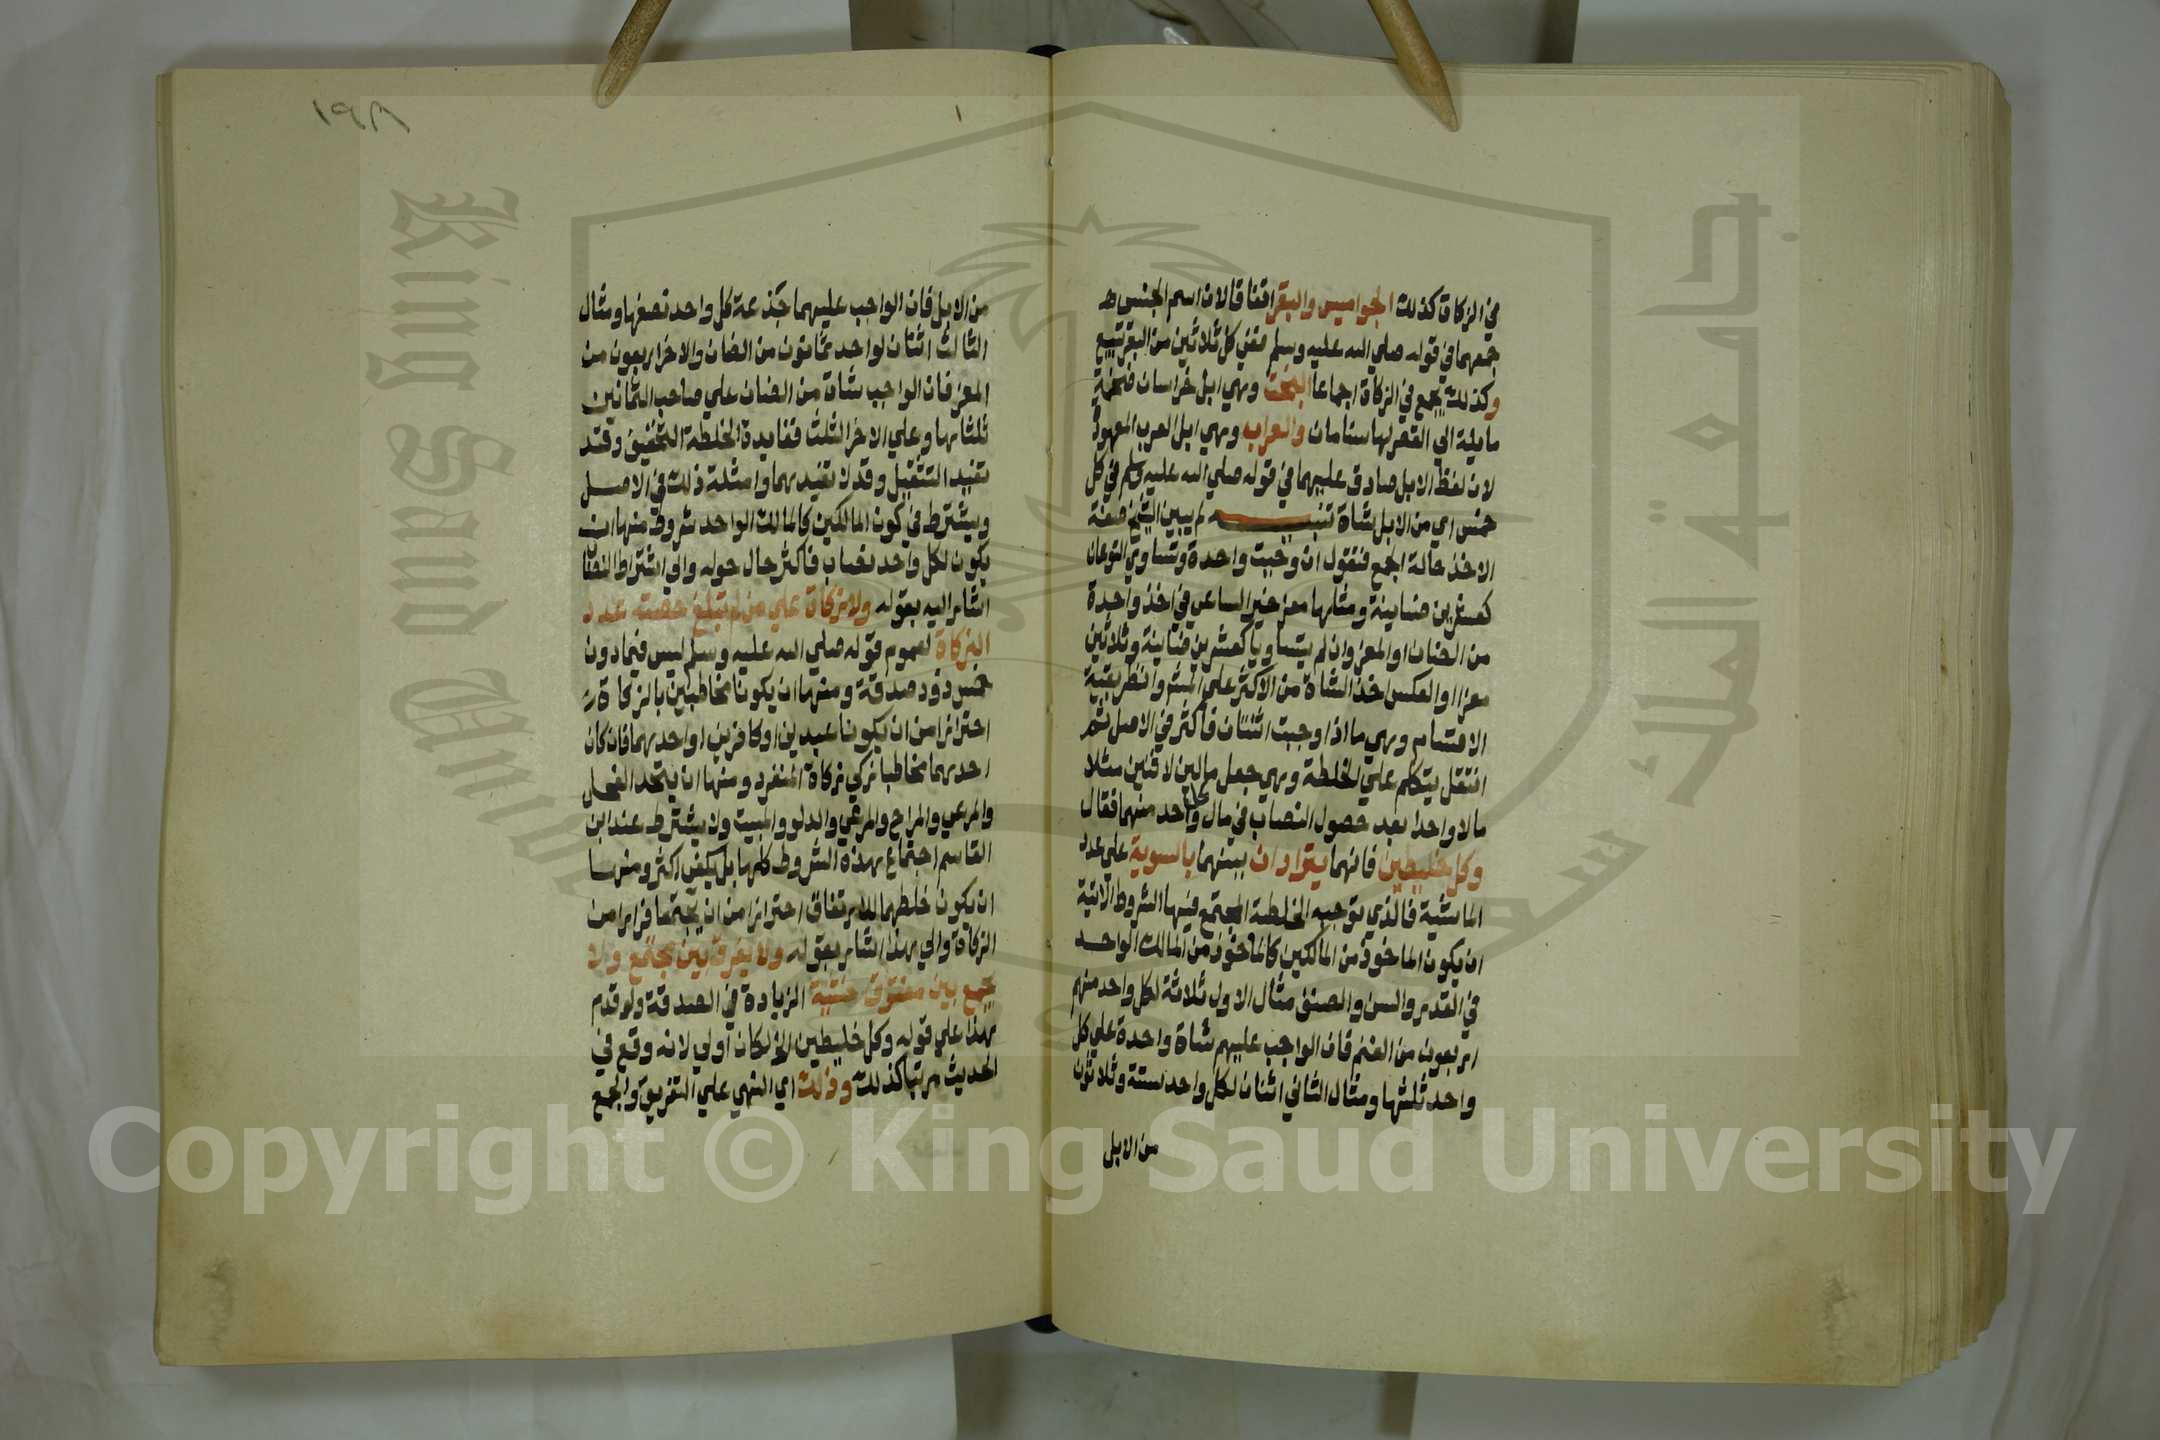 في الزكاة كذلك الجواميس والبقر اتفاقا لان اسم الجنس
جمعهما في قوله صلي الله عليه وسلم ففي كل ثلاثين من البقر تبيع
وكذلك يجمع في الزكاة اجماعا البخت وهي ابل خراسان ضخمة
مايلة الي القصر لها سنامان والعراب وهي ابل العرب المعهودة
لان لفظ الابل صادق عليهما في قوله صلي الله عليه وسلم في كل
خمس اي من الابل شاة تنبيه لم يبين الشيخ صفة
الاخذ حالة الجمع فنقول ان وجبت واحدة وتساوي النوعان
كعشرين ضاينة ومثلها معز خير الساعي في اخذ واحدة
من الضان او المعز وان لم يتساويا كعشرين ضاينة وثلاثين
معزا او العكس اخذ الشاة من الاكثر علي المشهور وانظر بقية
الاقسام وهي ما اذا وجبت اثنتان فاكثر في الاصل ثم
انتقل يتكلم علي الخلطة وهي جعل مالين لاثنين مثلا
مالا واحدا بعد حصول النصاب في مال كل واحد منهما فقال
وكل خليطين فانهما يترادان بينهما بالسوية علي عدد
الماشية فالذي توجبه الخلطة المجتمع فيها الشروط الاتية
ان يكون الماخوذ من المالكين كالماخوذ من المالك الواحد
في القدر والسن والصنف مثال الاول ثلاثة لكل واحد منهم
اربعون من الغنم فان الواجب عليهم شاة واحدة علي كل
واحد ثلثها ومثال الثاني اثنان لكل واحد ستة وثلاثون
من الابل
١٩٨
١
من الابل فان الواجب عليهما جذعة كل واحد نصفها ومثال
الثالث اثنان لواحد ثمانون من الضان والاخر اربعون من
المعز فان الواجب شاة من الضان علي صاحب الثمانين
ثلثاها وعلي الاخر الثلث ففايدة الخلطة التخفيف وقد
تفيد التثقيل وقد لا تفيدهما وامثلة ذلك في الاصل
ويشترط في كون المالكين كالمالك الواحد شروط منها ان
يكون لكل واحد نصاب فاكثر حال حوله والي اشتراط النصاب
اشار اليه بقوله ولا زكاة علي من لم تبلغ حصته عدد
الزكاة لعموم قوله صلي الله عليه وسلم ليس فيما دون
خمس ذود صدقة ومنها ان يكونا مخاطبين بالزكاة
احترازا من ان يكونا عبدين او كافرين او احدهما فان كان
احدهما مخاطبا زكي زكاة المنفرد ومنها ان يتحد الفحل
والراعي والمراح والمرعي والدلو والمبيت ولا يشترط عند ابن
القاسم اجتماع هذه الشروط كلها بل يكفي اكثرها ومنها
ان يكون خلطهما للارتفاق احترازا من ان يجتمعا فرارا من
الزكاة والي هذا اشار بقوله ولا يفرق بين مجتمع ولا
يجمع بين مفترق خشية الزيادة في الصدقة ولو قدم
هذا علي قوله وكل خليطين الخ لكان اولي لانه وقع في
الحديث مرتبا كذلك وذلك اي النهي علي التفريق والجمع
جامعة الملك سعود
King Saud University
Copyright © King Saud University